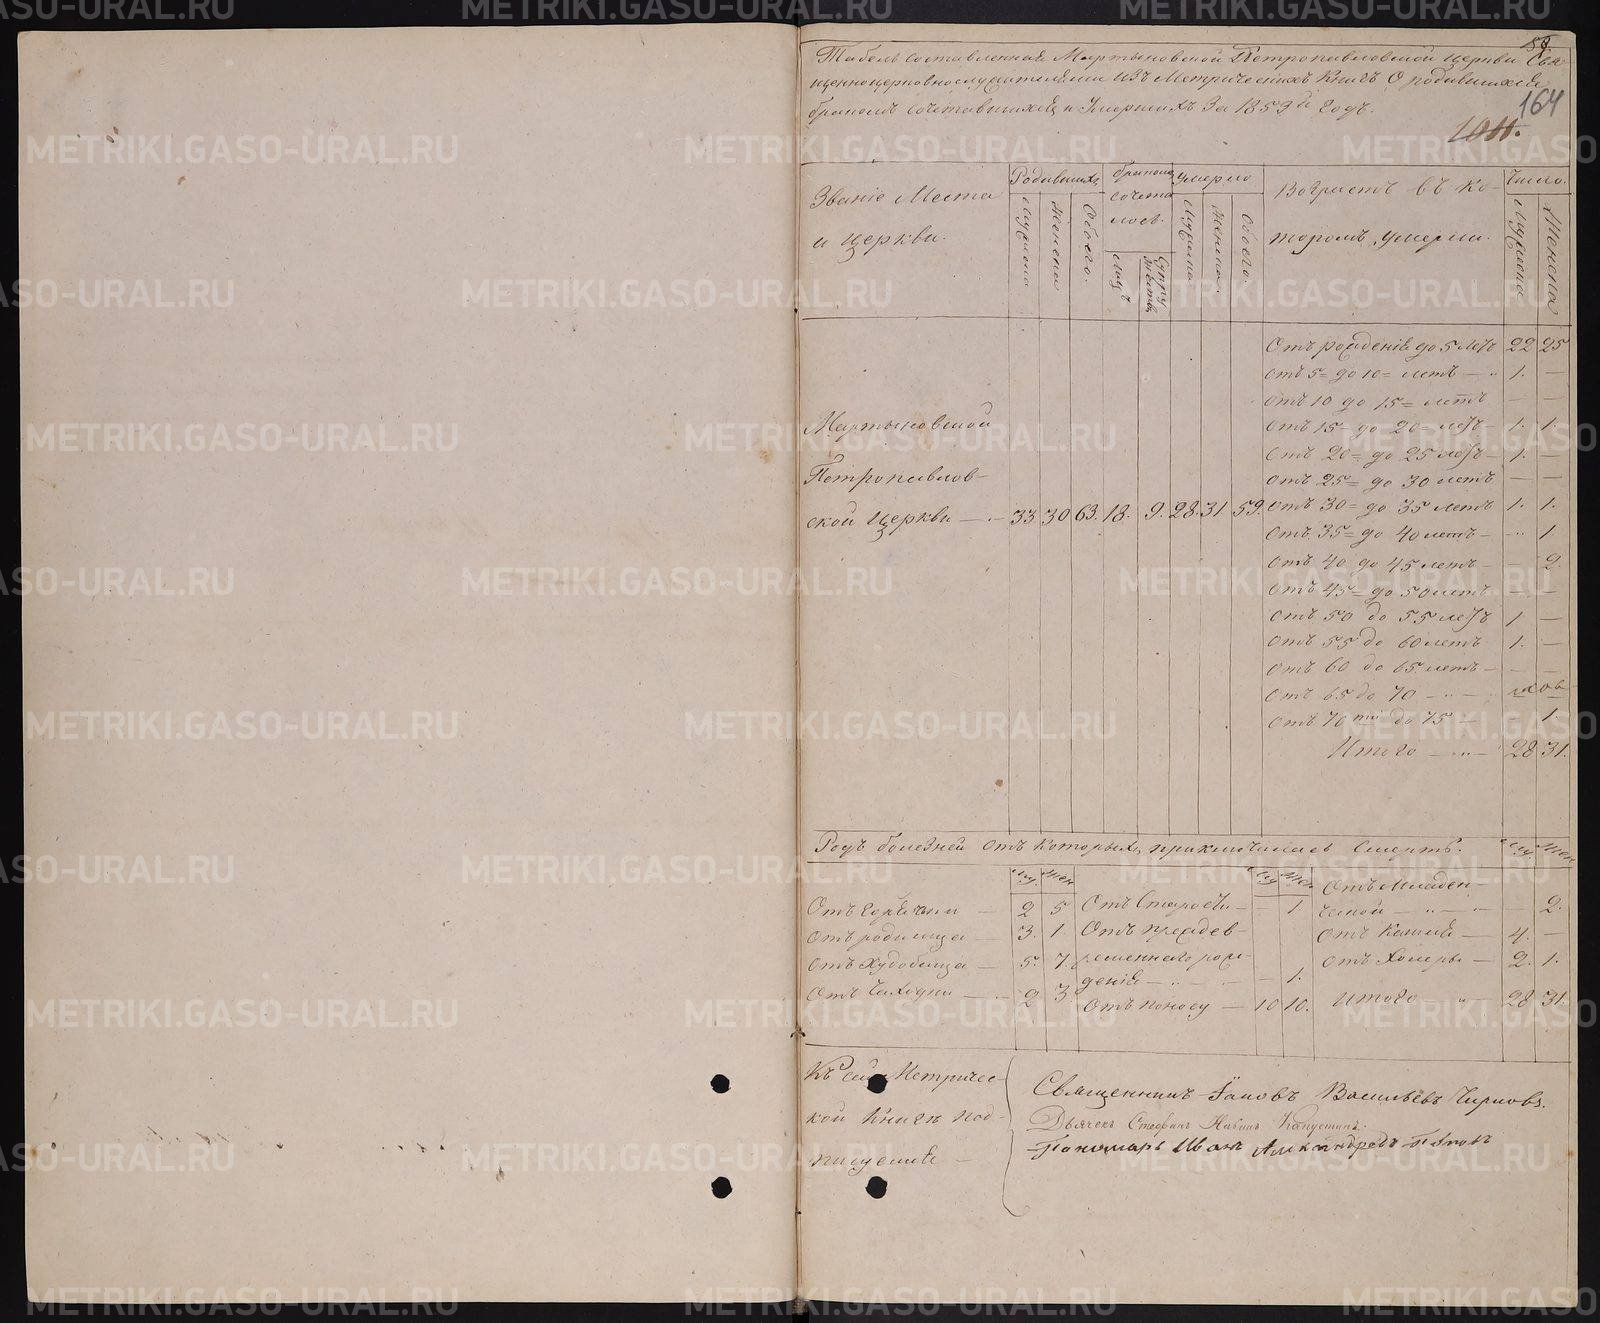 58
Табель составленная Мартыновской Петропавловской церкви Свя-
щенноцерковнослужителями изъ Метрическихъ Книгъ О родившихся,
бракомъ сочетавшихся и Умершихъ За 1859й годъ.
164
Званіе Места и церкви.
Родившихъ
Мужеска
Женска
Обоего.
бракомъ сочета лось.
Лицъ
Супружествъ
Умерло
Мужеска.
Женска.
Обоего.
Возрастъ въ ко-
торомъ умерли.
Число.
Мужеска
Женска
Мартыновской
Петропавлов-
ской Церкви — 33 30 63. 18. 9. 28. 31. 59.
Отъ рожденія до 5 летъ 22 25
Отъ 5 = до 10 = летъ — 1. —
Отъ 10 до 15 = летъ — —
Отъ 15 — до 20 = летъ — 1. 1.
Отъ 20 = до 25 летъ — 1. —
Отъ 25 = до 30 летъ — —
Отъ 30 = до 35 летъ 1. 1.
Отъ 35 = до 40 летъ — „ 1.
Отъ 40 до 45 летъ — — 2.
Отъ 45 = до 50 летъ — —
Отъ 50 до 55 летъ 1 —
Отъ 55 до 60 летъ 1. —
Отъ 60 до 65 летъ — — —
Отъ 65 до 70 — „ —
Отъ 70ти до 75 — 1.
Итого — „ — 28 31.
Родъ болезней Отъ Которыхъ приключилась Смерть. Му. Жен
Му. Жен
Отъ горячки — 2 5
Отъ родимца — 3. 1.
Отъ Худобища — 5. 7.
Отъ Чахотки — 2 3
Му. Жен.
Отъ Старости — 1
Отъ преждев-
ременнаго рож-
денія — „ — — 1.
Отъ поносу — 10 10.
Отъ Младен-
ческой — „ — — 2.
Отъ Кашля — 4. —
Отъ Холеры — 2. 1.
Итого „ 28 31.
Къ сей Метричес-
кой Книге под-
писуемся —
Священникъ Іаковъ Васильевъ Чирковъ.
Дьячекъ Стефанъ Капустинъ.
Пономарь Иван Александровъ Поповъ
METRIKI.GASO-URAL.RU